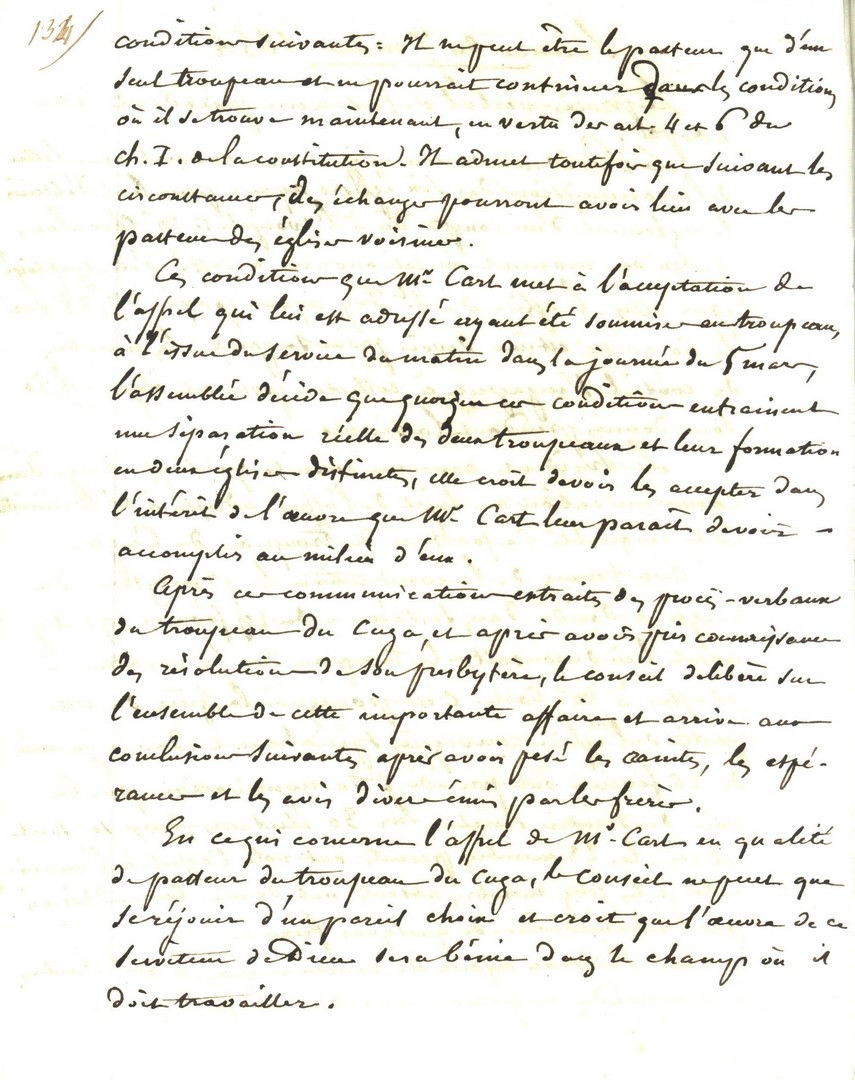 134/
conditions suivantes : Il ne peut être le pasteur que d'un
seul troupeau et ne pourrait continuer dans les conditions
où il se trouve maintenant, en vertu des art. 4 et 6 du
ch. I. de la constitution. Il admet toutefois que suivant les
circonstances, des échanges pourront avoir lieu avec les
pasteurs des églises voisines.
Ces conditions que Mr Cart met à l'acceptation de
l'appel qui lui est adressé ayant été soumises au troupeau,
à l'issue du service du matin dans la journée du 5 mars,
l'assemblée décide que quoique ces conditions entrainent
une séparation réelle des deux troupeaux et leur formation
en deux églises distinctes, elle croit devoir les accepter dans
l'intérêt de l'œuvre que Mr Cart leur parait devoir
accomplir au milieu d'eux.
Après ces communications extraites des procès-verbaux
du troupeau du Cuga, et après avoir pris connaissance
des résolutions de son presbytère, le conseil délibère sur
l'ensemble de cette importante affaire et arrive aux
conclusions suivantes après avoir pesé les craintes, les espé-
rances et les avis divers émis par les frères.
En ce qui concerne l'appel de Mr. Cart en qualité
de pasteur du troupeau du Cuga, le Conseil ne peut que
se réjouir d'un pareil choix et croit que l'œuvre de ce
serviteur de Dieu sera bénie dans le champ où il
doit travailler.